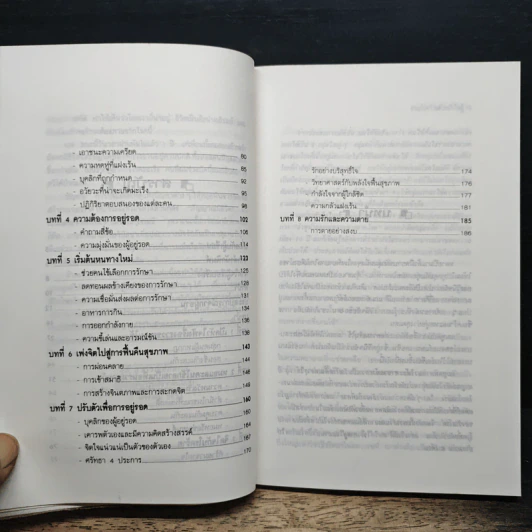 - เอาชนะความเครียด 80
- ความหดหู่ที่แฝงเร้น 85
- บุคลิกที่ถูกกำหนด
- อวัยวะที่น่าจะเกิดมะเร็ง 95
- ปฏิกิริยาตอบสนองของแต่ละคน 98
บทที่ 4 ความต้องการอยู่รอด 102
- คำถามสี่ข้อ 104
- ความมุ่งมั่นของผู้อยู่รอด 114
บทที่ 5 เริ่มต้นหนทางใหม่ 123
- ช่วยคนไข้เลือกการรักษา 125
- ลดทอนผลข้างเคียงของการรักษา 129
- ความเชื่อมั่นส่งผลต่อการรักษา 131
- อาหารการกิน 136
- การออกกำลังกาย 138
- ความขี้เล่นและอารมณ์ขัน 140
บทที่ 6 เพ่งจิตไปสู่การฟื้นคืนสุขภาพ 143
- การผ่อนคลาย
- การเข้าสมาธิ
- การสร้างจินตภาพและการสะกดจิต
บทที่ 7 ปรับตัวเพื่อการอยู่รอด 160
- บุคลิกของผู้อยู่รอด
- เคารพตัวเองและมีความคิดสร้างสรรค์ 164
- จิตใจแน่วแน่เป็นตัวของตัวเอง 167
- ศรัทธา 4 ประการ 170
- รักอย่างบริสุทธิ์ใจ 174
- วิทยาศาสตร์กับพลังใจฟื้นสุขภาพ 176
- กำลังใจจากผู้ใกล้ชิด 177
- ความกลัวแฝงเร้น 181
บทที่ 8 ความรักและความตาย 185
- การตายอย่างสงบ 186